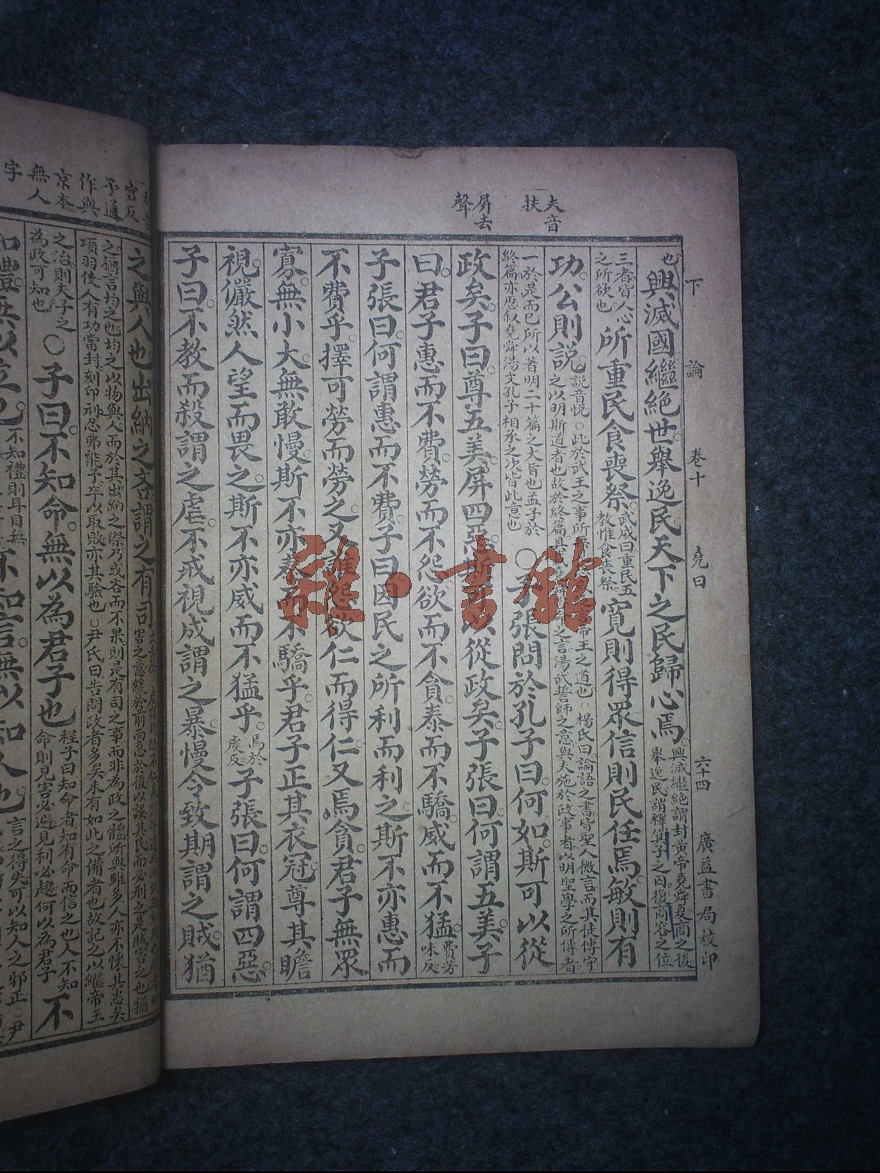 夫音扶
屏去聲
下論 卷十 堯曰 六十四 廣益書局校印
也興滅國繼絕世舉逸民天下之民歸心焉興滅繼絕謂封黃帝堯舜夏商之後舉逸民謂釋箕子之囚復商容之位
三者皆人心之所欲也所重民食喪祭武成曰重民五教惟食喪祭寬則得眾信則民任焉敏則有
功公則說說音悅○此於武王之事所
一於是而已所以著明二十篇之大旨也孟子於終篇亦歷叙堯舜湯文孔子相承之次皆此意也○子張問於孔子曰何如斯可以從
政矣子曰尊五美屏四惡以從政矣子張曰何謂五美子
曰君子惠而不費勞而不怨欲而不貪泰而不驕威而不猛費芳味反
子張曰何謂惠而不費子曰因民之所利而利之斯不亦惠而
不費乎擇可勞而勞之又誰怨欲仁而得仁又焉貪君子無眾
寡無小大無敢慢斯不亦泰而不驕乎君子正其衣冠尊其瞻
視儼然人望而畏之斯不亦威而不猛乎焉於虔反子張曰何謂四惡
子曰不教而殺謂之虐不戒視成謂之暴慢令致期謂之賊猶
之與人也出納之吝謂之有司
之猶言均之也均之以物與人而於其出納之際乃或吝而不果則是有司之事而非為政之體所與雖多人亦不懷其惠矣
項羽使人有功當封刻印刓忍弗能予卒以取敗亦其驗也○尹氏曰告問政者多矣未有如此之備者也故記之以繼帝王
之治則夫子之為政可知也○子曰不知命無以為君子也程子曰知命者知有命而信之也人不知命則見害必避見利必趨何以為君子不
知禮無以立也不知禮則耳目無不知言無以知人也言之得失可以知人之邪正○尹